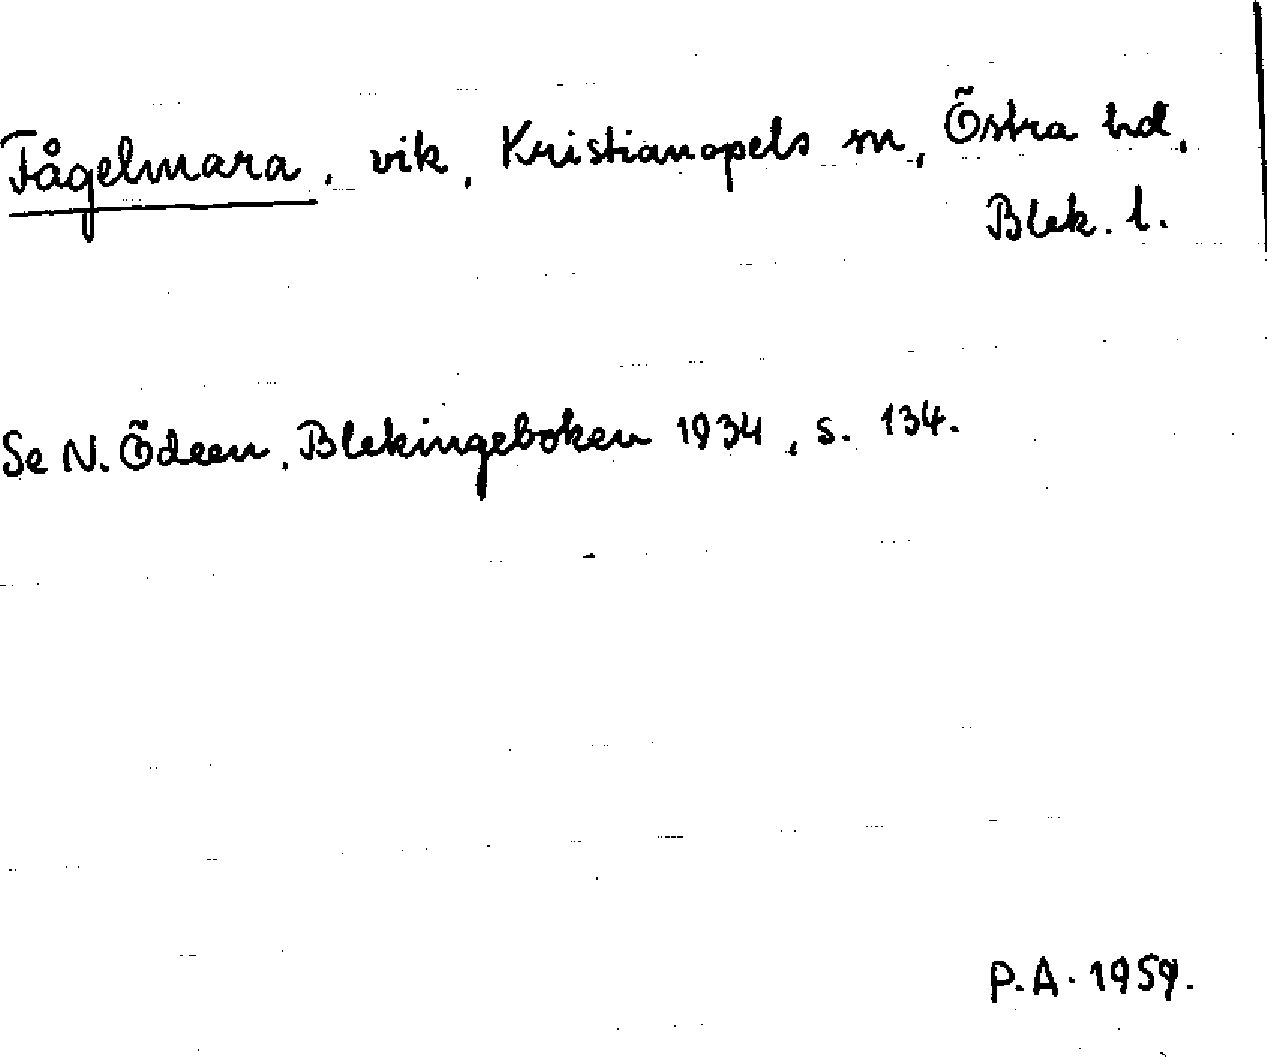 Fågelmara, vik, Kristianopels sn, Östra hd,
Blek. l.
Se N. Ödeen, Blekingeboken 1934, s. 134.
P.A. 1959.